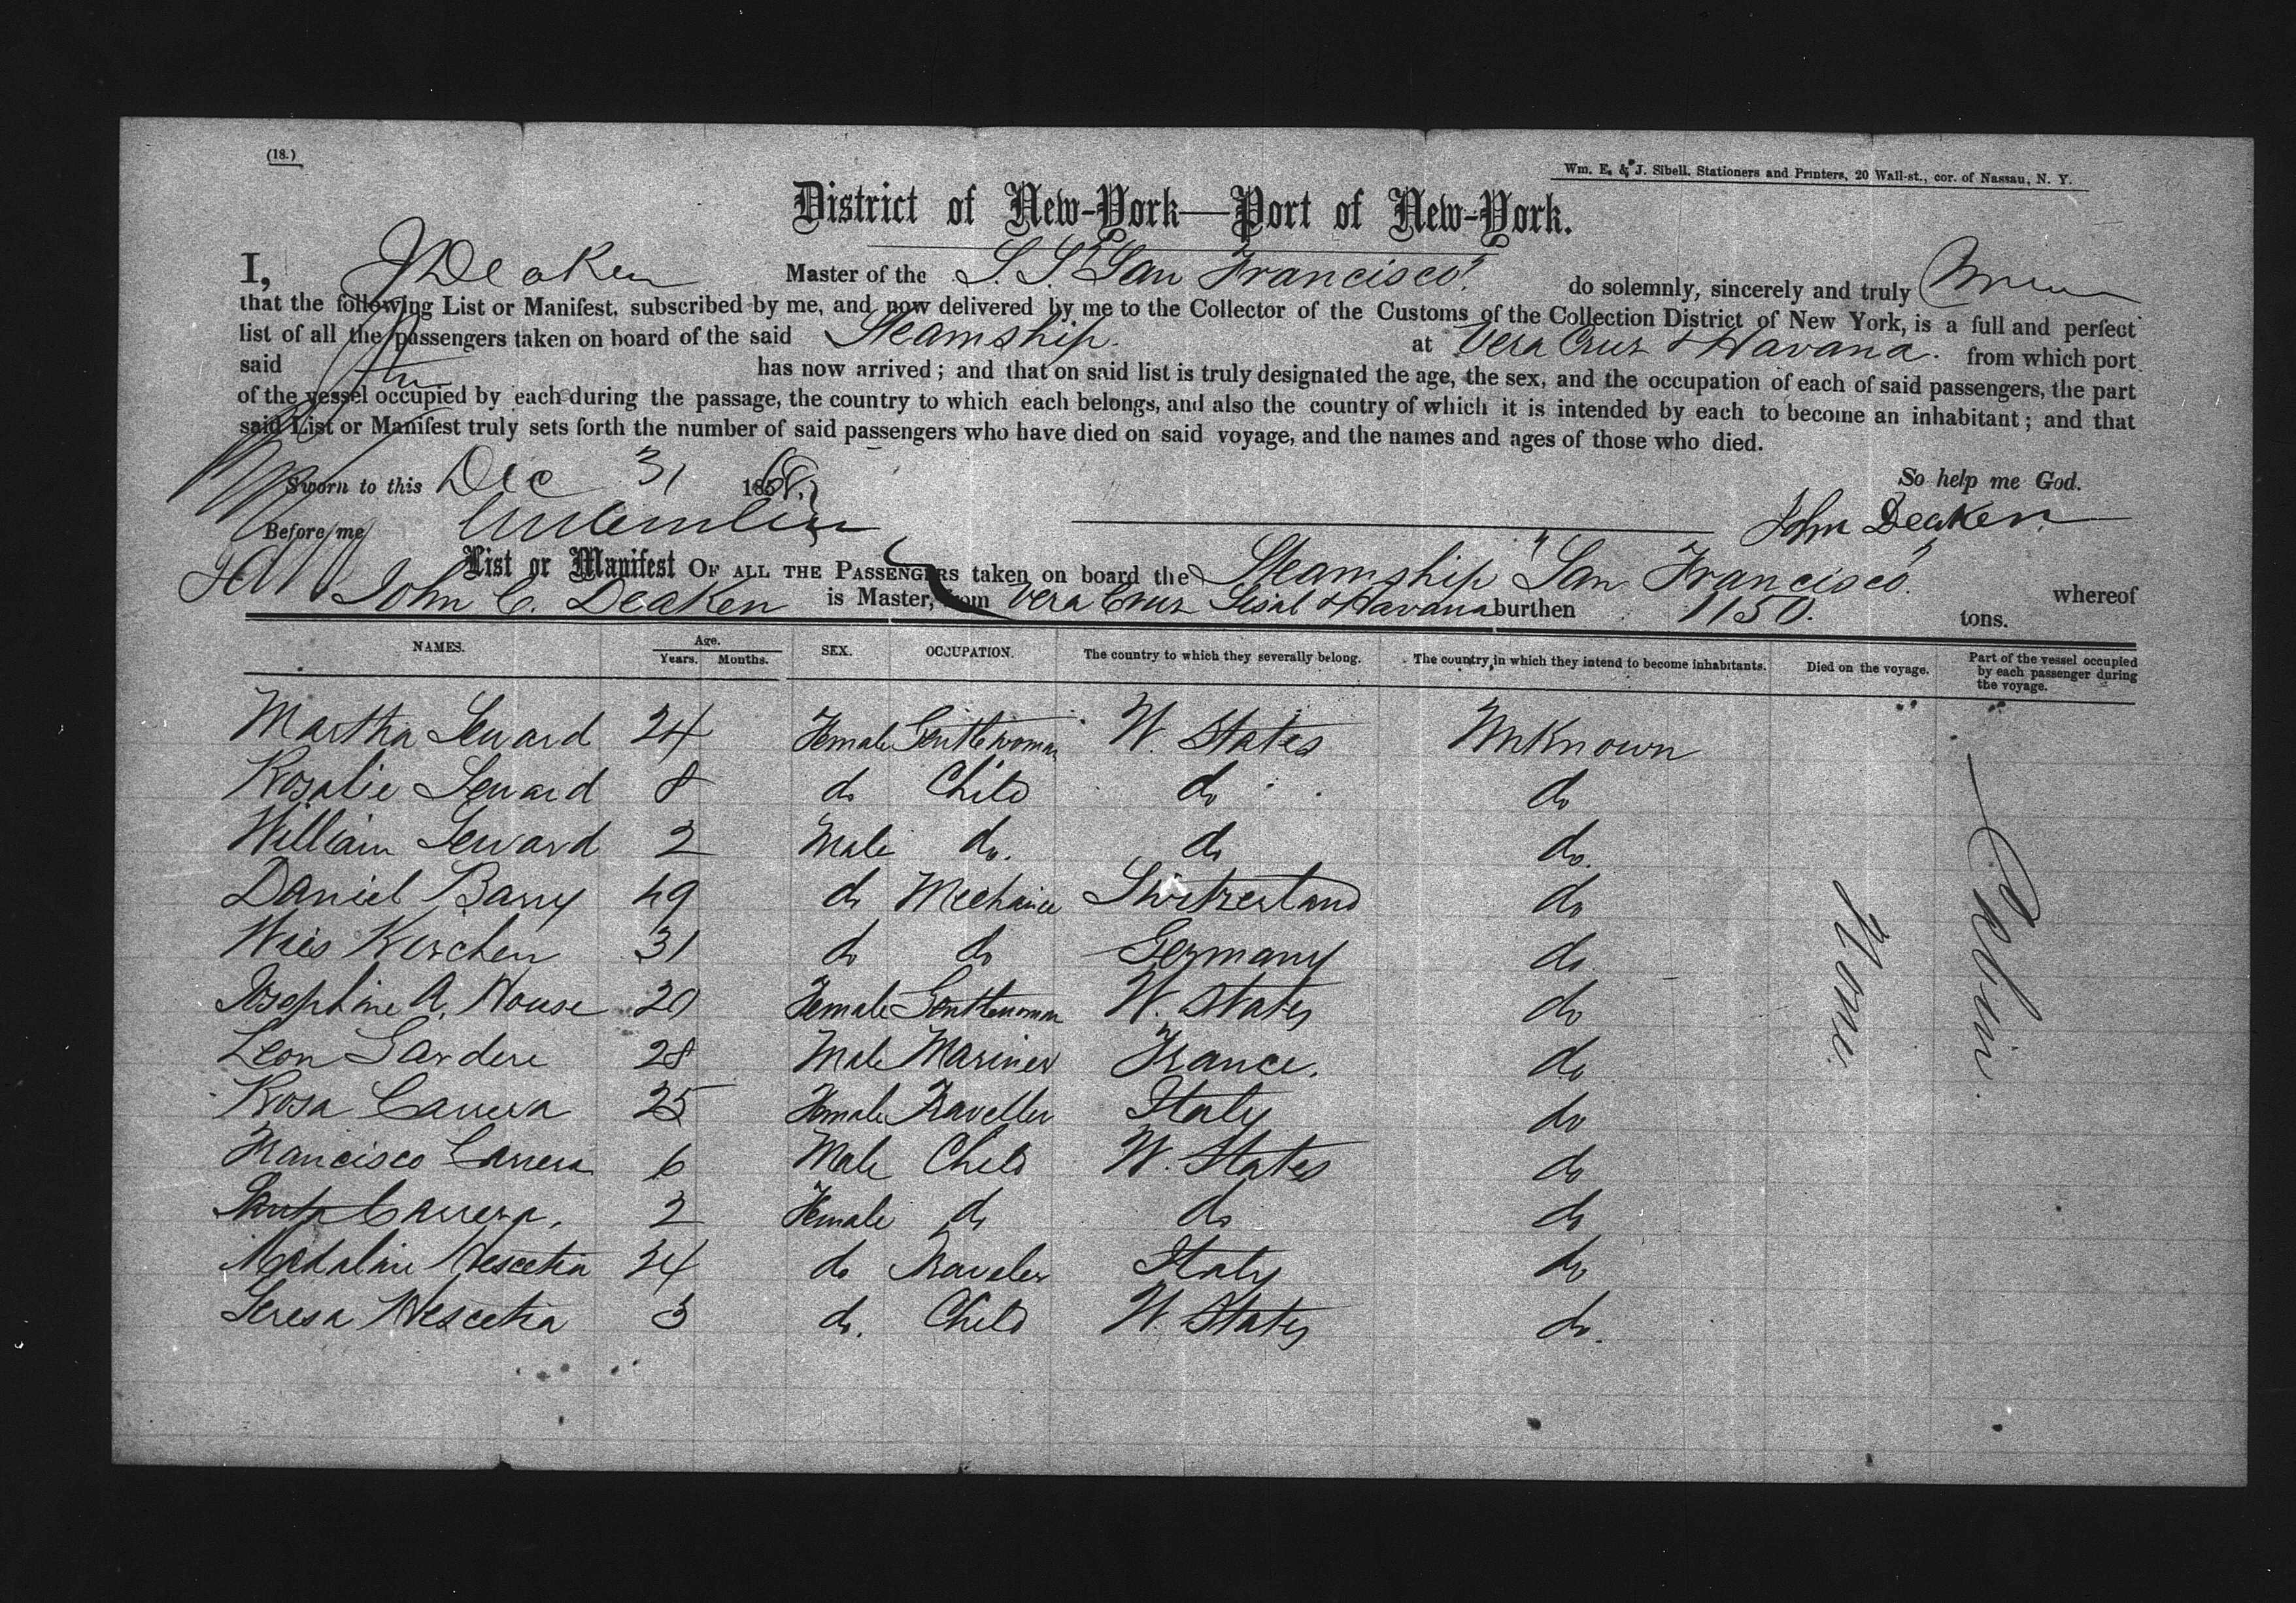 (18.)
Wm. E. & J. Sibell, Stationers and Printers, 20 Wall-st., cor. of Nassau, N. Y.
District of New-York—Port of New-York.
I, J Deaken Master of the S. S. "San Francisco" do solemnly, sincerely and truly
that the following List or Manifest, subscribed by me, and now delivered by me to the Collector of the Customs of the Collection District of New York, is a full and perfect
list of all the passengers taken on board of the said Steamship. at Vera Cruz & Havana. from which port
said has now arrived; and that on said list is truly designated the age, the sex, and the occupation of each of said passengers, the part
of the vessel occupied by each during the passage, the country to which each belongs, and also the country of which it is intended by each to become an inhabitant; and that
said List or Manifest truly sets forth the number of said passengers who have died on said voyage, and the names and ages of those who died.
Sworn to this Dec 31 1868. So help me God.
Before me John Deaken
List or Manifest OF ALL THE PASSENGERS taken on board the Steamship "San Francisco" whereof
John C. Deaken is Master, from Vera Cruz Sisal & Havana burthen 1150. tons.
NAMES. Age. Years. Months. SEX. OCCUPATION. The country to which they severally belong. The country in which they intend to become inhabitants. Died on the voyage. Part of the vessel occupied by each passenger during the voyage.
Martha Seward 24 Female Gentlewoman U. States Unknown
Rosalie Seward 8 do Child do do
William Seward 2 Male do. do do.
Daniel Barry 49 do Mechanic Switzerland do
Kerchen 31 do do Germany do.
Josephine A. House 20 Female Gentlewoman U. States do
Leon Gardere 28 Male Mariner France. do
Rosa Carrera 25 Female Traveller Italy do
Francisco Carrera 6 Male Child U. States do
Carrera. 2 Female do do do
Madalaine 24 do Traveler Italy do
Teresa 3 do. Child U States do.
None
Cabin